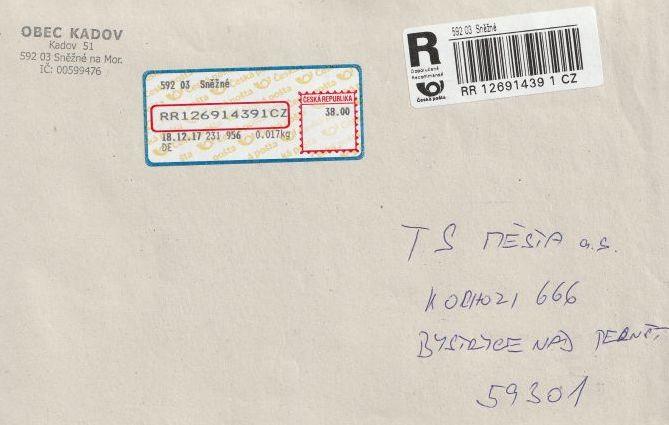 OBEC KADOV
Kadov 51
592 03 Sněžné na Mor.
IČ: 00599476
592 03 Sněžné
RR126914391CZ
18.12.17 231 956 0.017kg
DE
ČESKÁ REPUBLIKA
38.00
592 03 Sněžné
R
Doporučeně
Recommandé
Česká pošta
RR 12691439 1 CZ
TS MĚSTA a.s.
K OCHOZI 666
BYSTŘICE NAD PERNŠT
59301